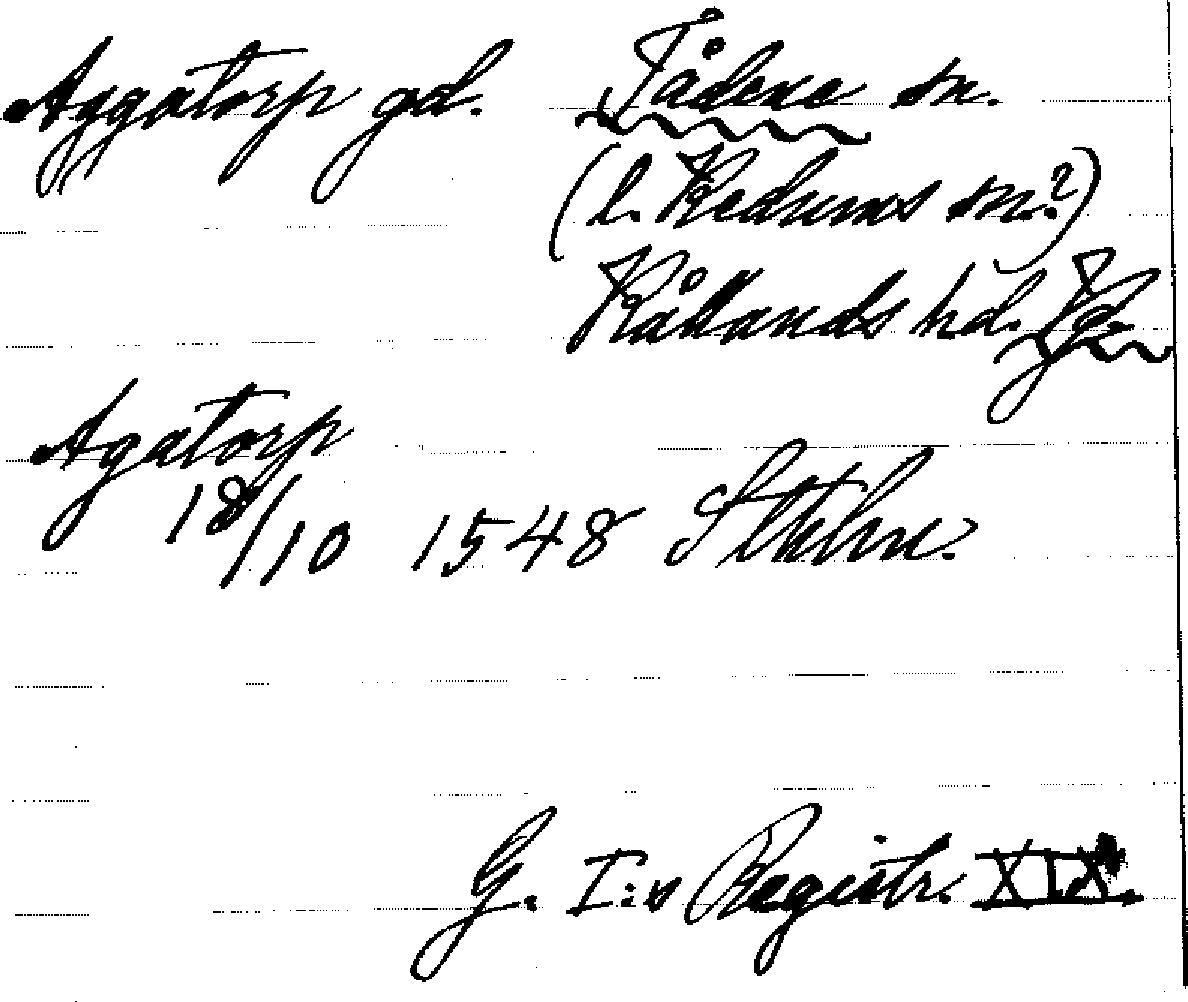 Aggatorp gd. Tådene sn.
(l. Redums sn.?)
Kållands hd. Vg.
Agatorp
18/10 1548 Sthlm.
G. I:s Registr. XIX.